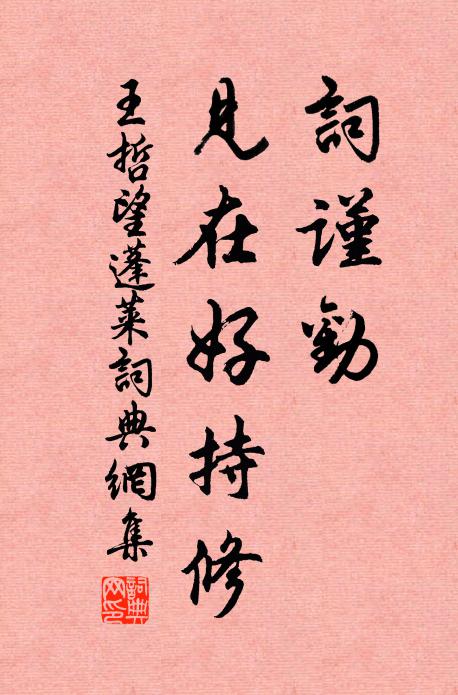 詞謹勸
見在好持修
王哲望蓬萊詞典網集
詞典網印